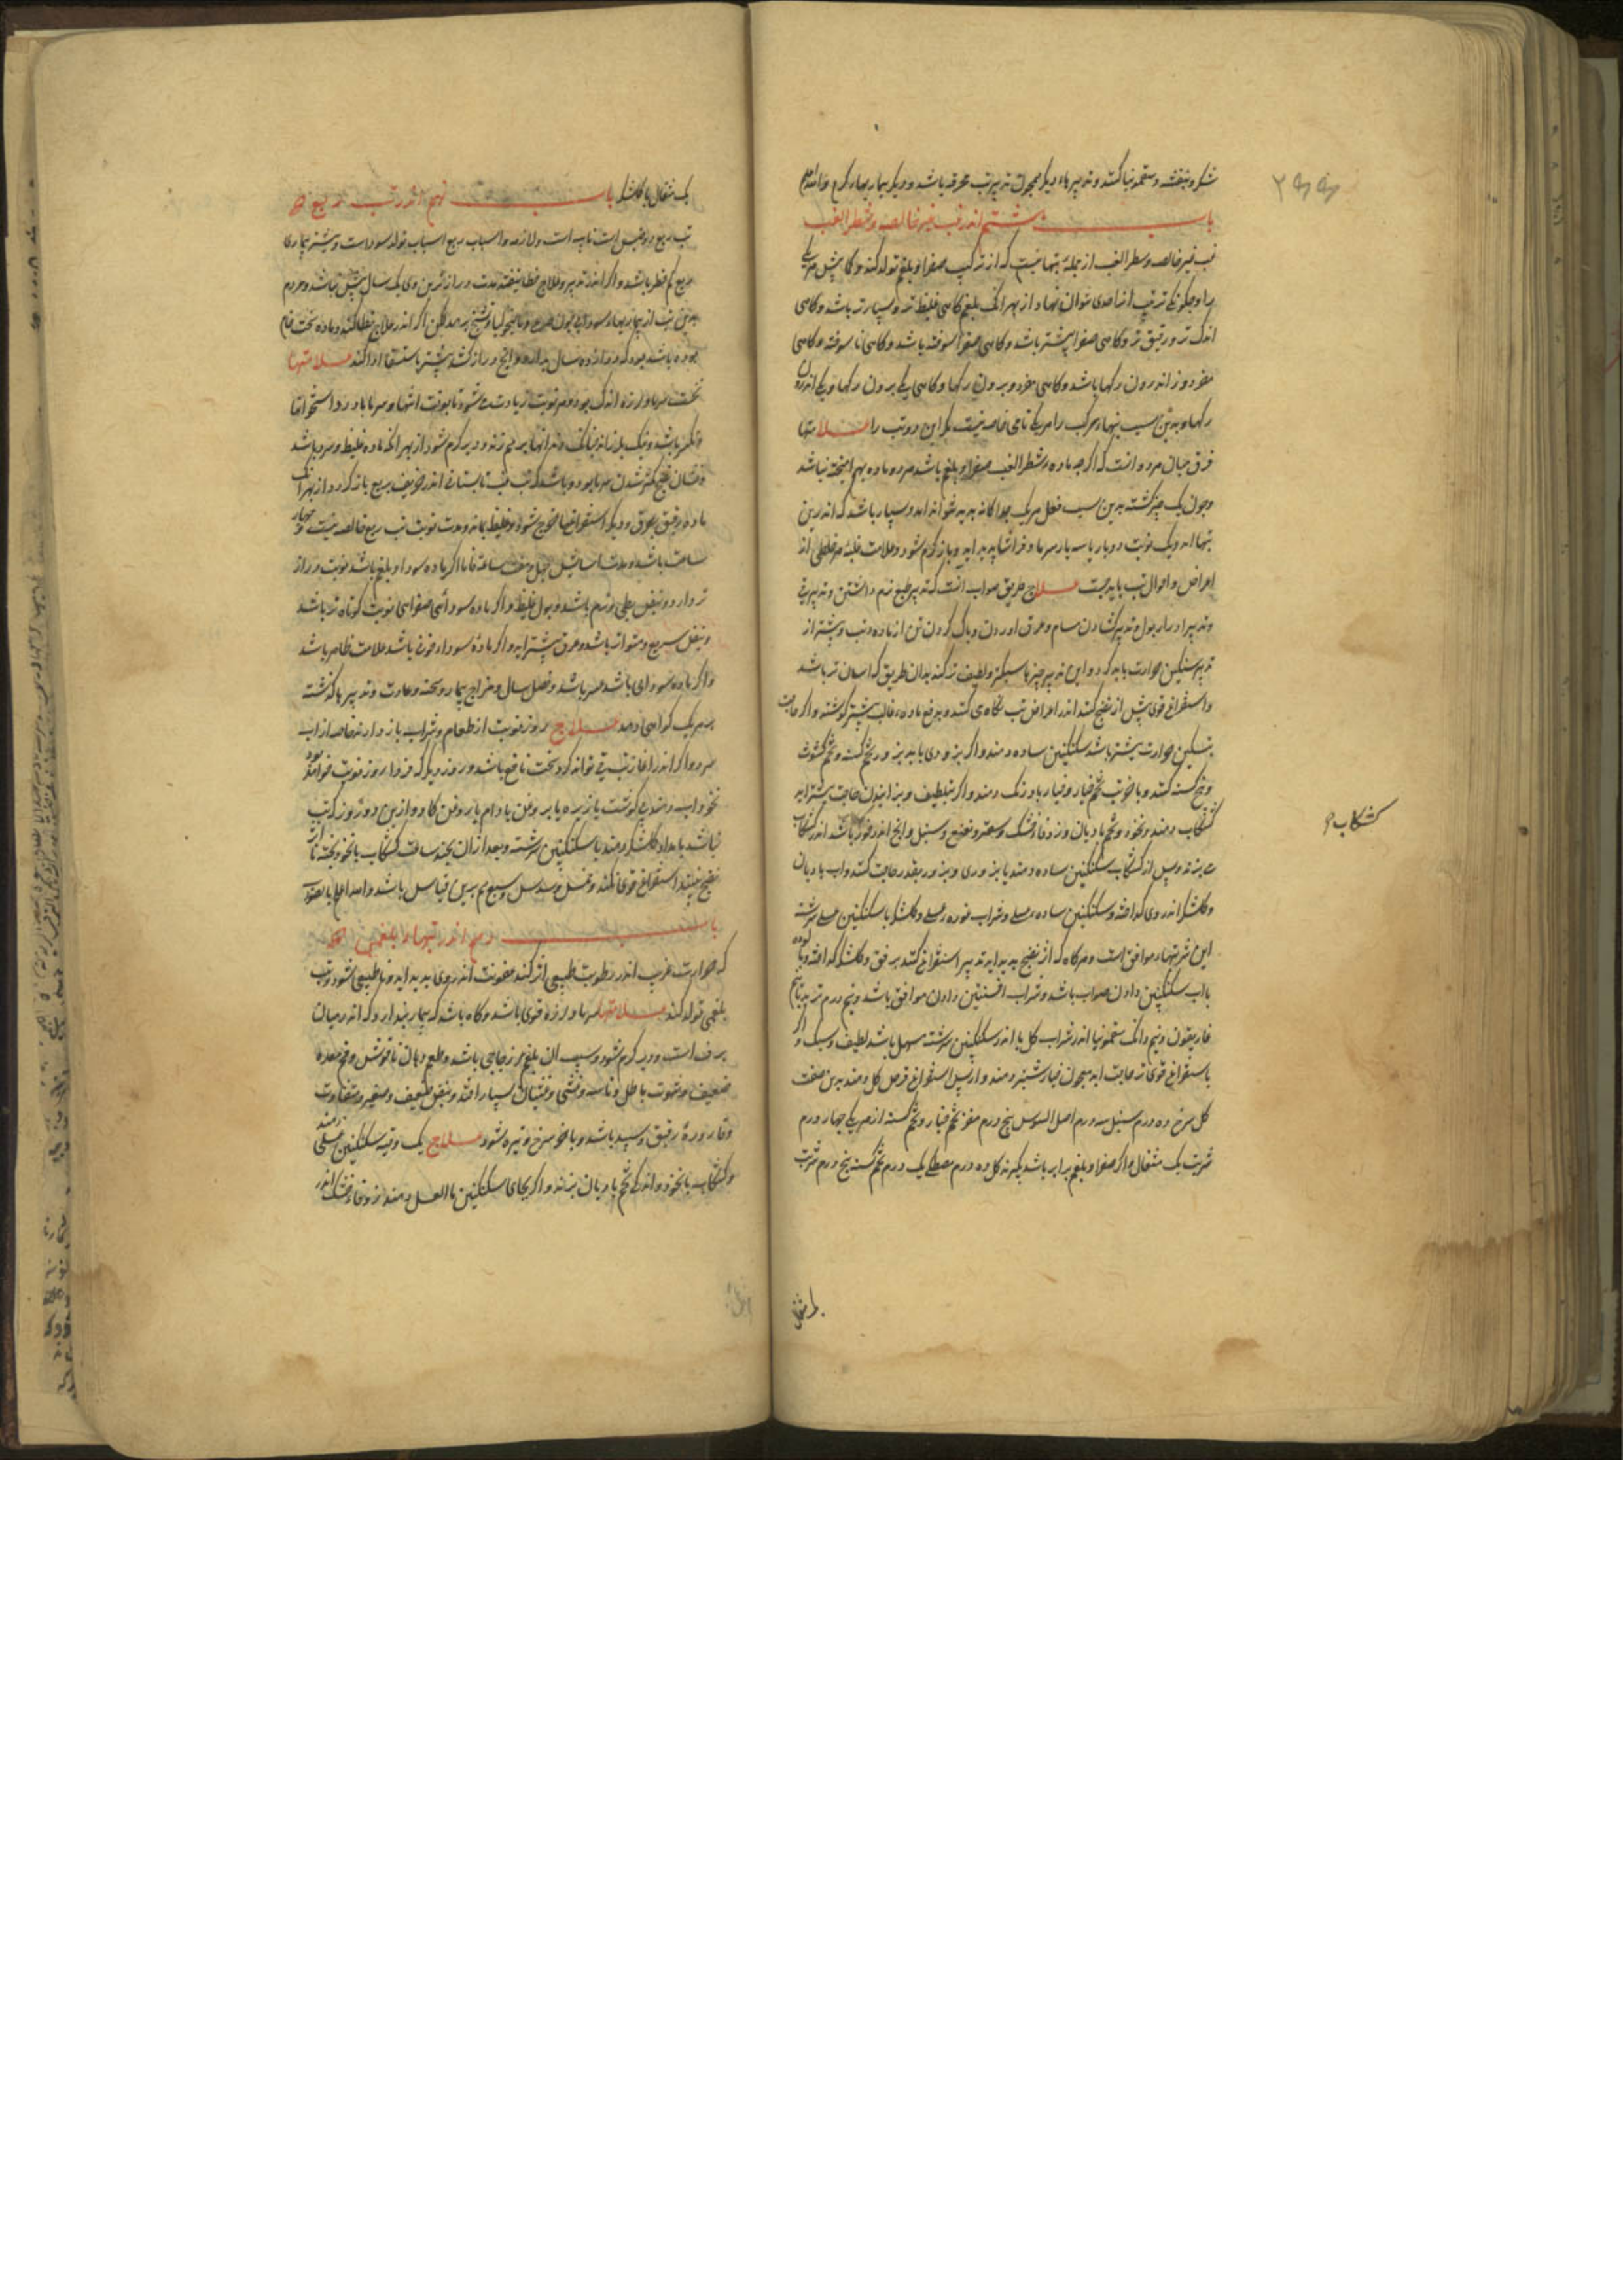 شکر و بنفشه و سقمونیا کنند و تدبیرهاء دیکر همچون تدبیر تب محرقه باشد و دیکر بیماریهاء کرم
باب هشتم اندر تب غیر خالصه و شطر الغب
غب غیر خالصه و شطر الغب از جملهٔ تبهائیست که از ترکیب صفرا و بلغم تولد کند و کمابیش هر یکی
را و چکونکی ترکیب انرا حدی نتوان نهاد از بهر انک بلغم کاهی غلیظ تر و بسیارتر باشد و کاهی
اندک تر و رقیق تر و کاهی صفرا بیشتر باشد و کاهی صفرا سوخته باشد و کاهی نا سوخته و کاهی
هر دو اندرون رکها باشد و کاهی هر دو برون رکها و کاهی یکی برون رکها و یکی اندرون
رکها و بدین سبب تبهاء مرکب را هر یکی نامی خاصه نیست مکر این دو تب را علامتها
فرق میان هر دو انست که اکر چه ماده شطر الغب صفرا و بلغم باشد هر دو ماده بهم امیخته نباشد
و چون یک چیز کشته بدین سبب فعل هر یک جداکانه پدید تواند امد و بسیار باشد که اندرین
تبها اندر یک نوبت دو بار یا سه بار سرما و فراشا پدید اید و باز کرم شود و علامت غلبهٔ هر خلطی از
اعراض و احوال تب باید جست علاج طریق صواب انست که تدبیر طبع نرم داشتن و تدبیر قی
و تدبیر ادرار بول و تدبیر کشادن مسام و عرق اوردن و پاک کردن تن از ماده تب بیشتر از
تدبیر تسکین حرارت باید کرد و این تدبیر چیزها سبکتر و لطیف تر کنند بدان طریق که اسان تر باشد
و استفراغ قوی پیش از نضج نکنند اندر اعراض تب نکاه می کنند و بدفع ماده غالب بیشتر کوشند و اکر حاجت
بتسکین حرارت بیشتر باشد سکنکبین ساده دهند و اکر بزوری باید بزور تخم کسنه و تخم کشوث
و بیخ کسنه کنند و باخر تب تخم خیار و خیار بادرنک دهند و اکر بتلطیف و بزانیدن حاجت بیشتر اید
کشکاب دهند و نخود و تخم بادیان و زوفا خشک و سعتر و نعنع و سنبل و انچ اندر خور باشد اندر کشکاب
می بزند و پس از کشکاب سکنکبین ساده دهند یا بزوری و بزور بقدر حاجت کنند و اب بادیان
و کلشکر اندر وی کداخته و سکنکبین ساده عسلی و شراب غوره عسلی و کلشکر با سکنکبین عسلی سرشته
این شربتهاء موافق است و هرکاه که اثر نضج پدید اید تدبیر استفراغ کنند برفق و کلشکر کداخته
با اب سکنکبین دادن صواب باشد و شراب افسنتین دادن موافق باشد و نیم درم تربد با نیم درم
غاریقون و نیم دانک سقمونیا اندر شراب کل یا اندر سکنکبین سرشته مسهل باشد لطیف و سبک و اکر
باستفراغ قوی تر حاجت اید معجون خیارشنبر دهند و از پس استفراغ قرص کل دهند بدین صفت
کل سرخ ده درم سنبل سه درم اصل السوس پنج درم مغز تخم خیار و تخم کسنه از هر یکی چهار درم
شربت یک مثقال و اکر صفرا و بلغم برابر باشد بکیرند کل ده درم مصطکی یک درم تخم کسنه پنج درم شربت
کشکاب
یک مثقال با کلشکر باب نهم اندر تب ربع
تب ربع دو جنس است نایبه است و لازمه و اسباب ربع اسباب تولد سوداست و بیشتر بیماری
ربع کم خطر باشد و اکر اندر تدبیر و علاج خطا نیفتد مدت درازترین وی یک سال بیش نباشد و مردم
بدین تب از بیماریهاء سودایی چون صرع و مالیخولیا و تشنج برهد لکن اکر اندر علاج خطا کنند و ماده سخت خام
بوده باشد بود که دوازده سال بدارد و انچ دراز کشد بیشتر باستسقا ادا کند علامتها
نخست سرما و لرزه اندک بود و هر نوبت زیادت می شود تا بوقت انتها و سرما با درد استخوانها
و تکسر باشد و نیک بلرزاند چنانک دندانها بر هم زند و دیر کرم شود از بهر انکه ماده غلیظ و سرد باشد
و نشان نضج کمتر شدن سرما بود و باشد که تب غب تابستانی اندر خریف بربع باز کردد از بهر انک
ماده رقیق بعرق و دیکر استفراغها خرج شود و غلیظ بماند و مدت نوبت تب ربع خالصه بیست و چهار
ساعت باشد و مدت اسایش چهل و هشت ساعت فاما اکر ماده سودا و بلغم باشد نوبت دراز
تر دارد و نبض بطی و نرم باشد و بول غلیظ و اکر ماده سودائی صفرایی نوبت کوتاه تر باشد
و نبض سریع و متواتر باشد و عرق بیشتر اید و اکر ماده سوداء خونی باشد علامت خون ظاهر باشد
و اکر ماده سودایی باشد و فصل سال و مزاج بیمار و سحنه و عادت و تدبیرها کذشته
بر هر یک کواهی دهد علاج روز نوبت از طعام و شراب باز دارند خاصه از اب
سرد و اکر اندر اغاز تب قی تواند کرد سخت نافع باشد و روز دیکر که فردا روز نوبت خواهد بود
نخوداب دهند بی کوشت یا زیره با بروغن بادام یا بروغن کاو و ازین دو روز که تب
نباشد بامداد کلشکر دهند با سکنکبین سرشته و بعد از ان بچند ساعت کشکاب با نخود پخته تا اثر
نضج نبیند استفراغ قوی نکنند و خمس و سدس و سبع هم برین قیاس باشد والله اعلم بالصواب
باب دهم اندر تبهاء بلغمی
که حرارت غریب اندر رطوبت طبیعی اثر کند عفونت اندر وی پدید اید و ناطبیعی شود و تب
بلغمی تولد کند علامتها سرما و لرزه قوی باشد و کاه باشد که بیمار پندارد که اندر میان
برف است و دیر کرم شود و سبب ان بلغم زجاجی باشد و طعم دهان ناخوش و فم معده
ضعیف و شهوت باطل و تاسه و غشی و غثیان بسیار افتد و نبض ضعیف و صغیر و متفاوت
و قاروره رقیق و سپید باشد و باخر سرخ و تیره شود علاج یک وقیه سکنکبین عسلی دهند
و کشکاب با نخود و اندکی تخم بادیان بزند و اکر بجای سکنکبین ماالعسل دهند زوفاء خشک اندر